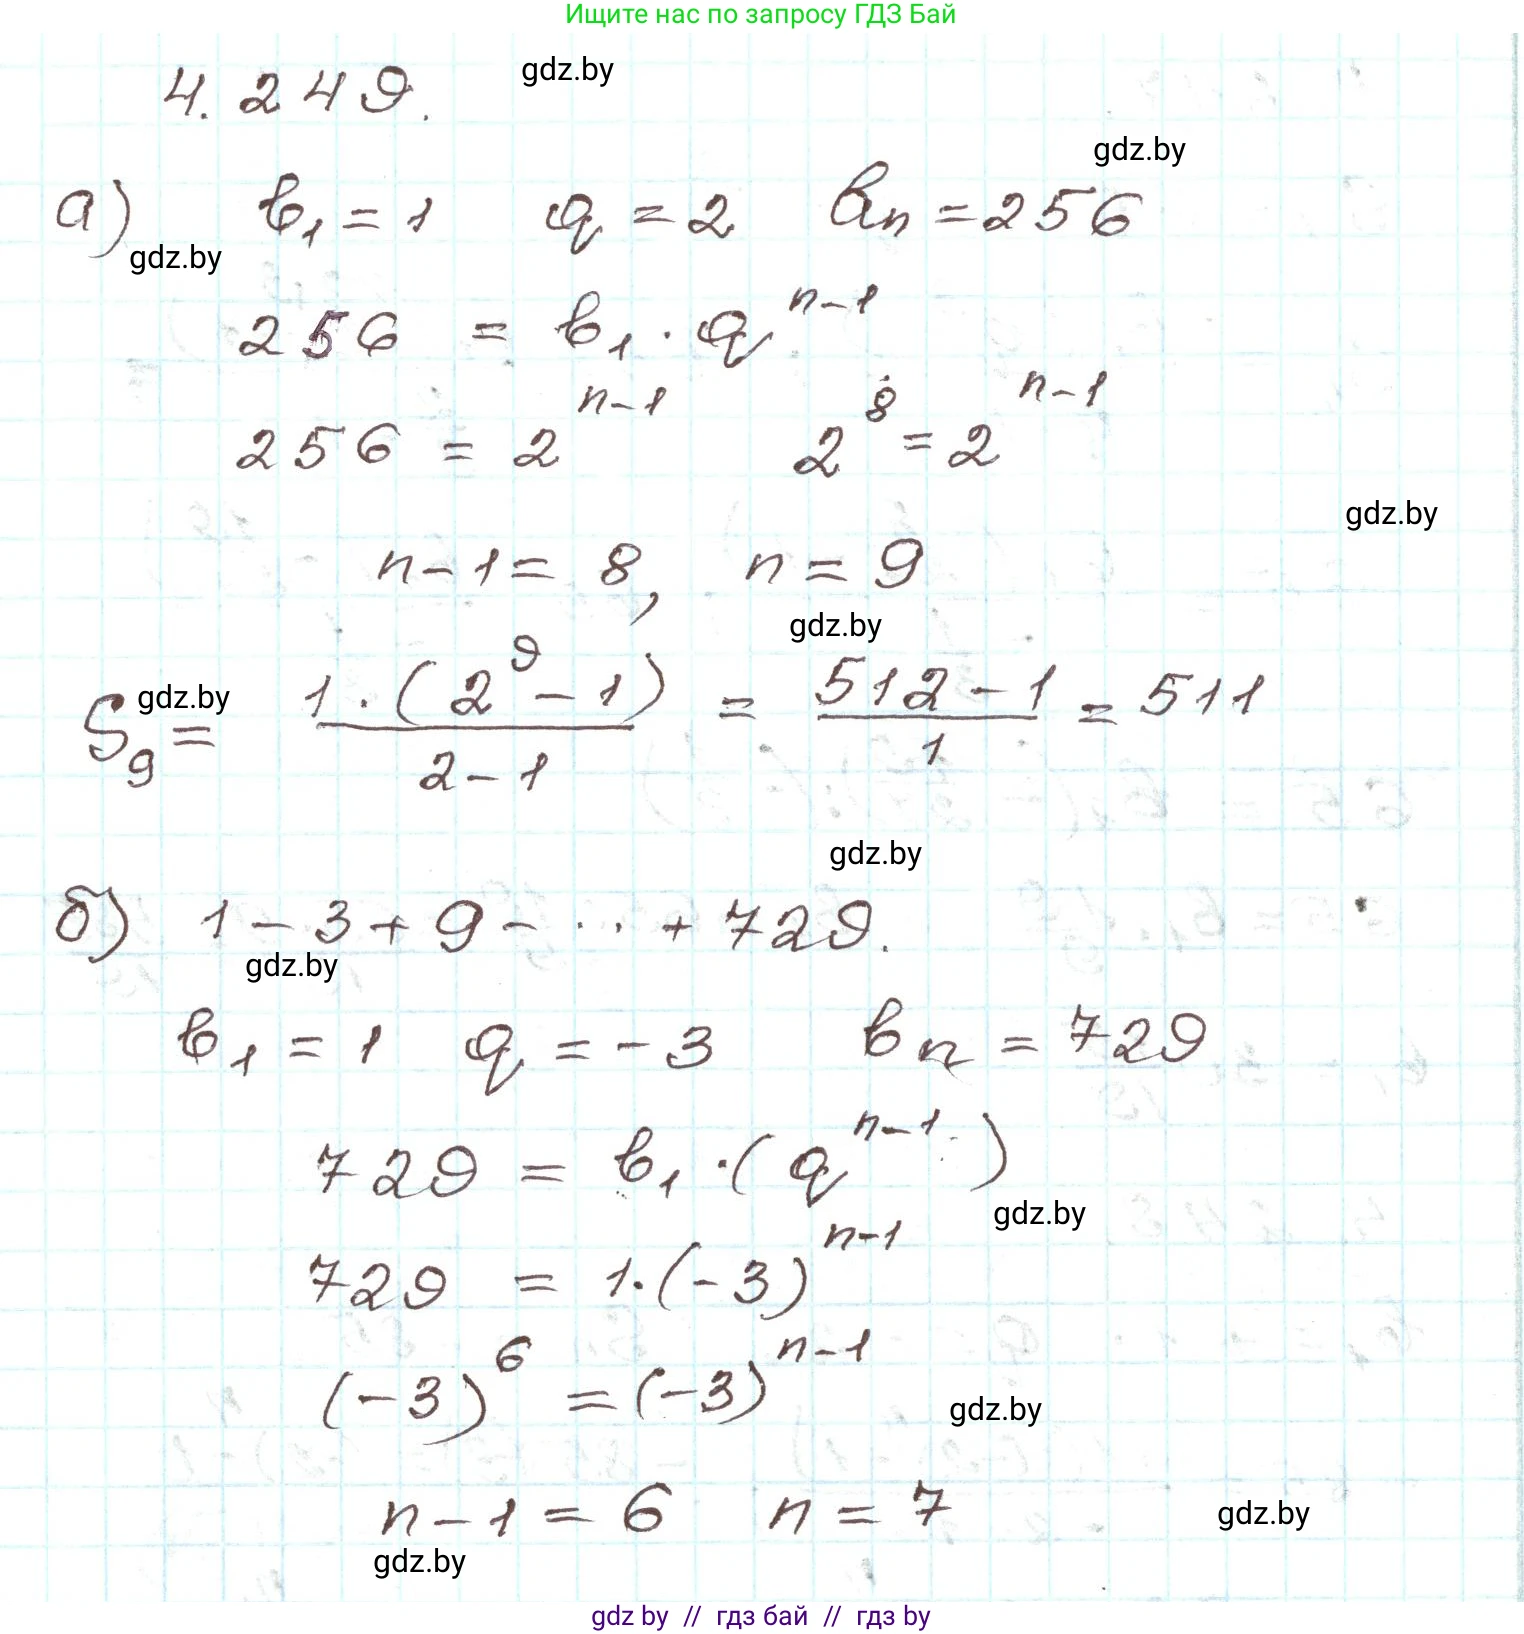 Ищите нас по запросу ГДЗ Бай
4.249.
gdz.by
gdz.by
а) b₁ = 1 q = 2 bₙ = 256
gdz.by
256 = b₁ · qⁿ⁻¹
256 = 2ⁿ⁻¹ 2⁸ = 2ⁿ⁻¹
gdz.by
n - 1 = 8, n = 9
gdz.by
gdz.by
S₉ = (1 · (2⁹ - 1)) / (2 - 1) = (512 - 1) / 1 = 511
gdz.by
б) 1 - 3 + 9 - ... + 729.
gdz.by
b₁ = 1 q = -3 bₙ = 729
729 = b₁ · (qⁿ⁻¹)
gdz.by
729 = 1 · (-3)ⁿ⁻¹
(-3)⁶ = (-3)ⁿ⁻¹
gdz.by
n - 1 = 6 n = 7
gdz.by
gdz.by
gdz by // гдз бай // гдз by